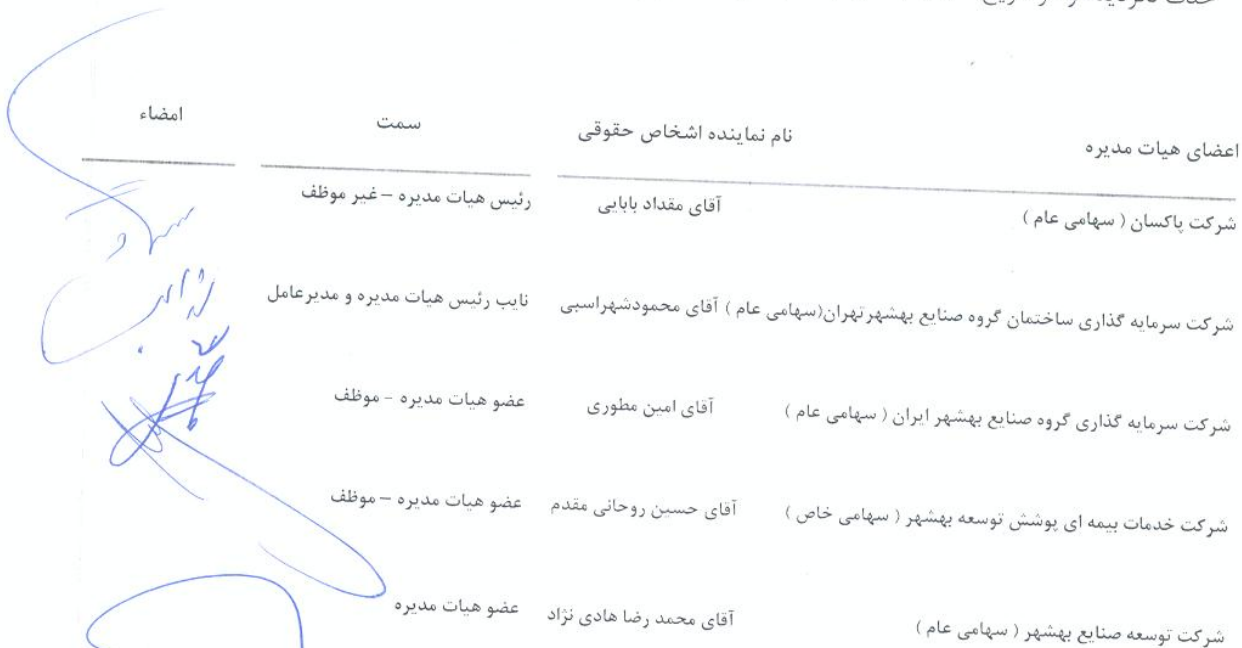 اعضای هیات مدیره نام نماینده اشخاص حقوقی سمت امضاء
شرکت پاکسان ( سهامی عام ) آقای مقداد بابایی رئیس هیات مدیره – غیر موظف
شرکت سرمایه گذاری ساختمان گروه صنایع بهشهرتهران(سهامی عام ) آقای محمودشهراسبی نایب رئیس هیات مدیره و مدیرعامل
شرکت سرمایه گذاری گروه صنایع بهشهر ایران ( سهامی عام ) آقای امین مطوری عضو هیات مدیره - موظف
شرکت خدمات بیمه ای پوشش توسعه بهشهر ( سهامی خاص ) آقای حسین روحانی مقدم عضو هیات مدیره – موظف
شرکت توسعه صنایع بهشهر ( سهامی عام ) آقای محمد رضا هادی نژاد عضو هیات مدیره